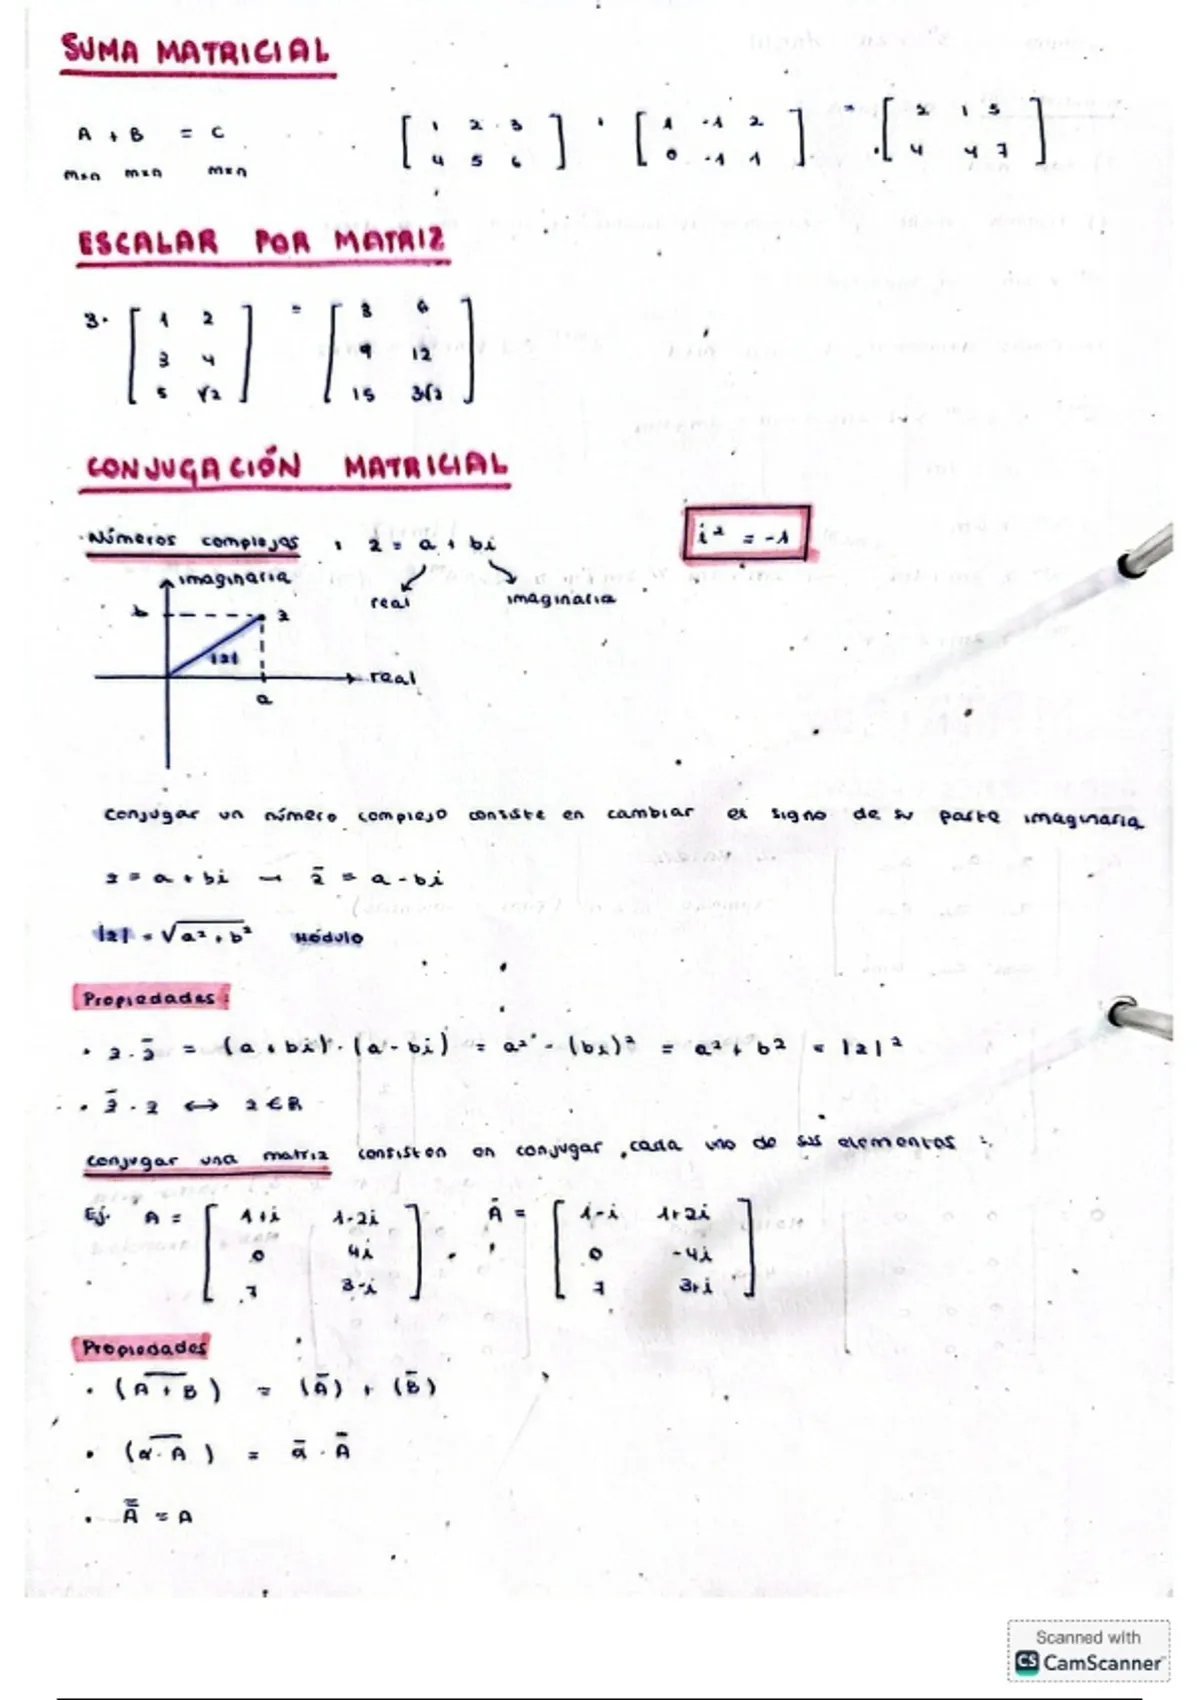 SUMA MATRICIAL
A + B = C
m×n m×n m×n
[ 1 2 3 ] + [ 1 -1 2 ] = [ 2 1 5 ]
[ 4 5 6 ] [ 0 -1 1 ] [ 4 4 7 ]
ESCALAR POR MATRIZ
3· [ 1 2 ] = [ 3 6 ]
[ 3 4 ] [ 9 12 ]
[ 5 √2 ] [ 15 3√2 ]
CONJUGACIÓN MATRICIAL
Números complejos : z = a + bi
i² = -1
real imaginaria
imaginaria
b z
|z|
real
a
Conjugar un número complejo consiste en cambiar el signo de su parte imaginaria
z = a + bi → z̄ = a - bi
|z| = √a² + b² Módulo
Propiedades:
• z · z̄ = (a + bi) · (a - bi) = a² - (bi)² = a² + b² = |z|²
• z̄ = z ↔ z ∈ R
conjugar una matriz consisten en conjugar cada uno de sus elementos :
Ej. A = [ 1+i 1-2i ] Ā = [ 1-i 1+2i ]
[ 0 4i ] [ 0 -4i ]
[ 7 3-i ] [ 7 3+i ]
Propiedades
• (A + B)‾ = (Ā) + (B̄)
• (α · A)‾ = ᾱ · Ā
• A̿ = A
Scanned with
CS CamScanner